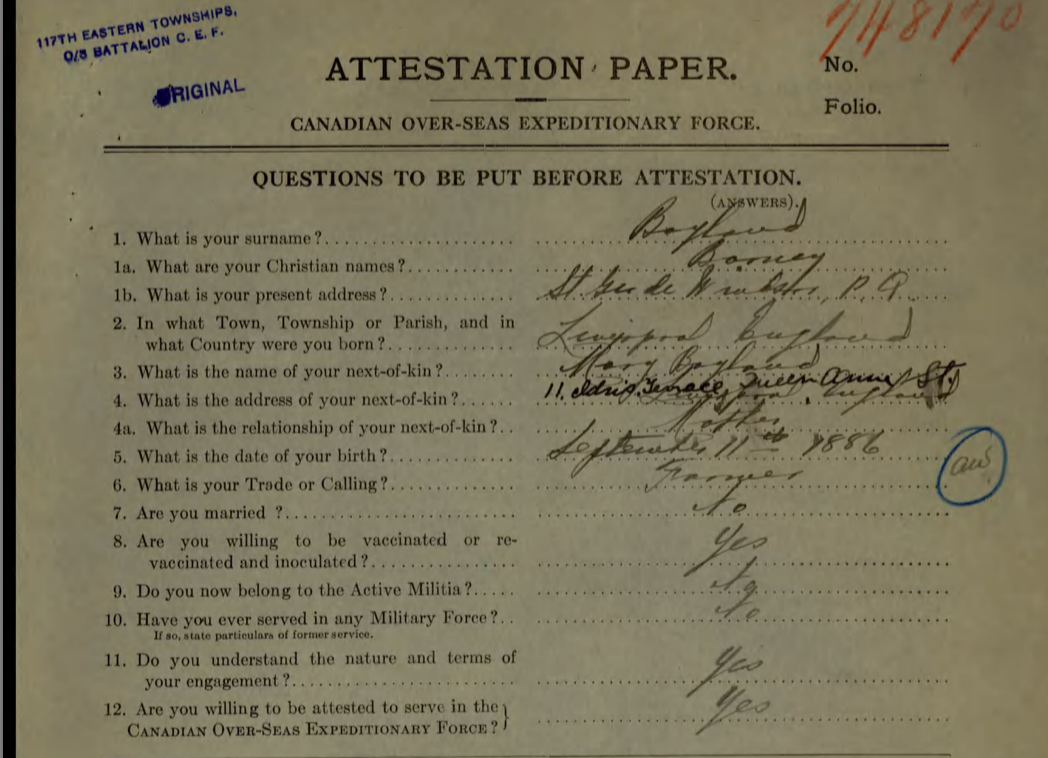 117TH EASTERN TOWNSHIPS,
O/S BATTALION C. E. F.
ORIGINAL
748170
ATTESTATION PAPER.
No.
Folio.
CANADIAN OVER-SEAS EXPEDITIONARY FORCE.
QUESTIONS TO BE PUT BEFORE ATTESTATION.
(ANSWERS).
1. What is your surname?.................... Boyland
1a. What are your Christian names?............ Barney
1b. What is your present address?.............. P. Q.
2. In what Town, Township or Parish, and in
what Country were you born?.............. Liverpool England
3. What is the name of your next-of-kin?........ Mary Boyland
4. What is the address of your next-of-kin?...... 11. Idris Terrace, Queen Anne St.
Liverpool, England
4a. What is the relationship of your next-of-kin?.. Mother
5. What is the date of your birth?.............. September 11th 1886
6. What is your Trade or Calling?.............. Farmer
7. Are you married ?.......................... No
8. Are you willing to be vaccinated or re-
vaccinated and inoculated?................ Yes
9. Do you now belong to the Active Militia?..... No
10. Have you ever served in any Military Force?.. No
If so, state particulars of former service.
11. Do you understand the nature and terms of
your engagement?........................ Yes
12. Are you willing to be attested to serve in the
CANADIAN OVER-SEAS EXPEDITIONARY FORCE? Yes